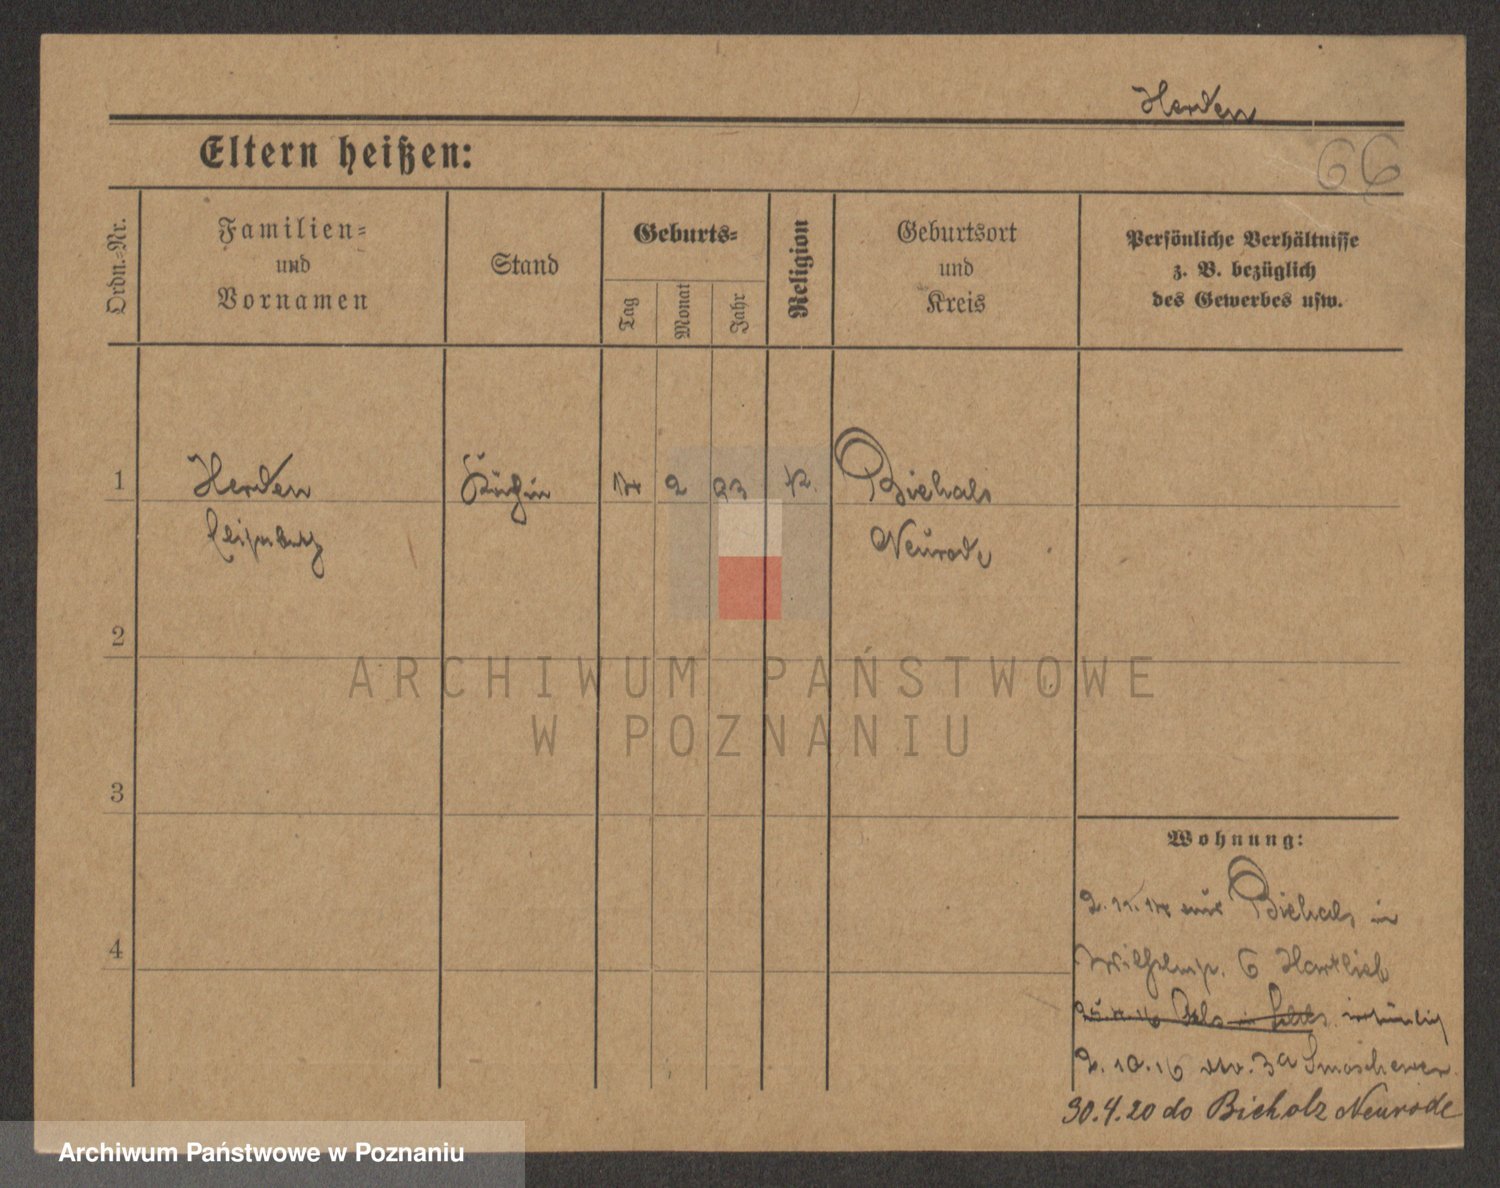 Herden
Eltern heißen:
66
Ordn.-Nr.
Familien-
und
Vornamen
Stand
Geburts-
Tag
Monat
Jahr
Religion
Geburtsort
und
Kreis
Persönliche Verhältnisse
z. B. bezüglich
des Gewerbes usw.
1 Herden Köchin 14 2 93 k. Biehals
Elisabeth Neurode
2
3
4
ARCHIWUM PAŃSTWOWE
W POZNANIU
Wohnung:
2.11.14 aus Biehals in
Wilhelmstr. 6 Hartlieb
irrtümlich
2.10.16 3a Smoschewer
30.4.20 do Bieholz Neurode
Archiwum Państwowe w Poznaniu